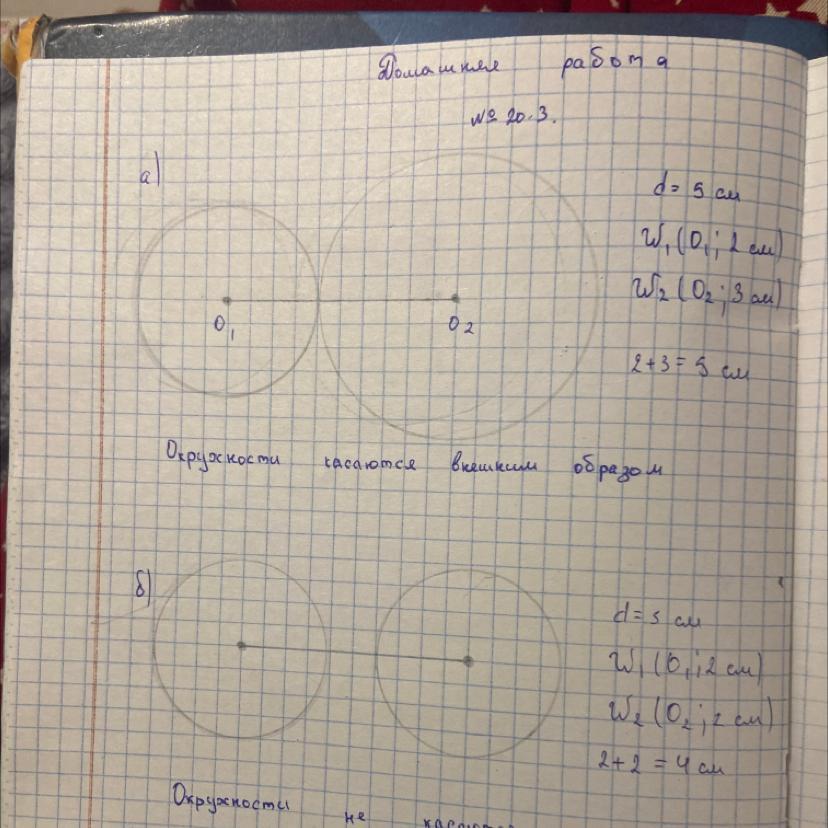 Домашняя работа
№ 20.3.
а)
d = 5 см
W₁ (O₁; 2 см)
W₂ (O₂; 3 см)
O₁ O₂
2+3 = 5 см
Окружности касаются внешним образом
б)
d = 5 см
W₁ (O₁; 2 см)
W₂ (O₂; 2 см)
2+2 = 4 см
Окружности не